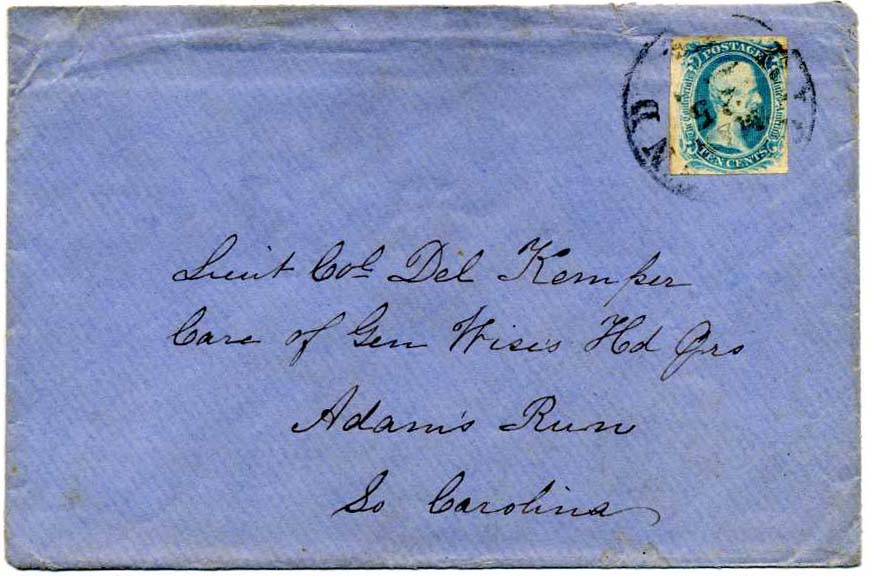 POSTAGE
TEN CENTS
Lieut Col Del Kemper
Care of Gen Wise's Hd Qrs
Adam's Run
So Carolina